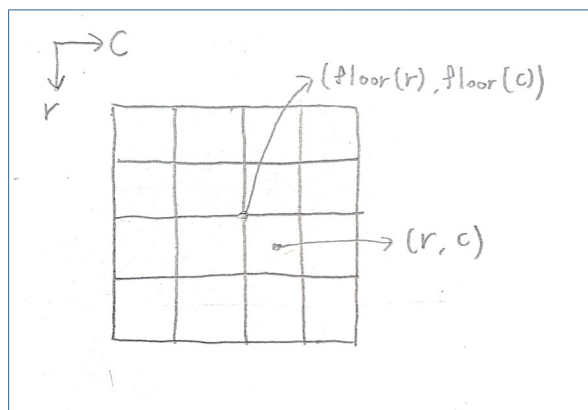 C
r
(floor(r), floor(c))
(r, c)